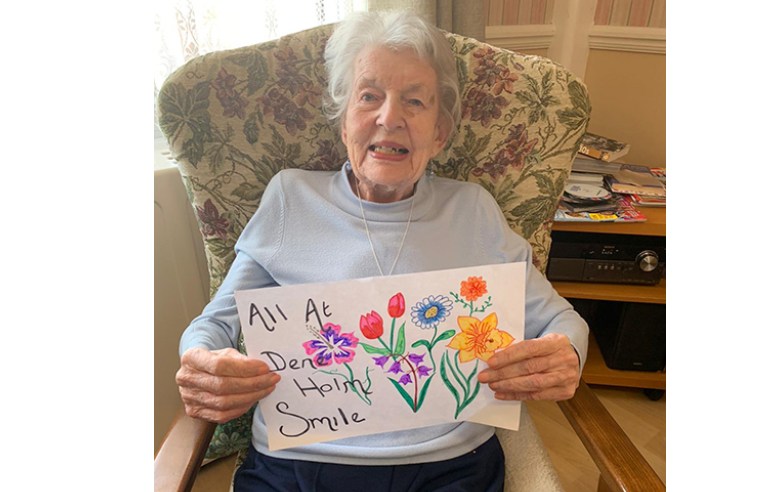 All At
Dene
Holm
Smile